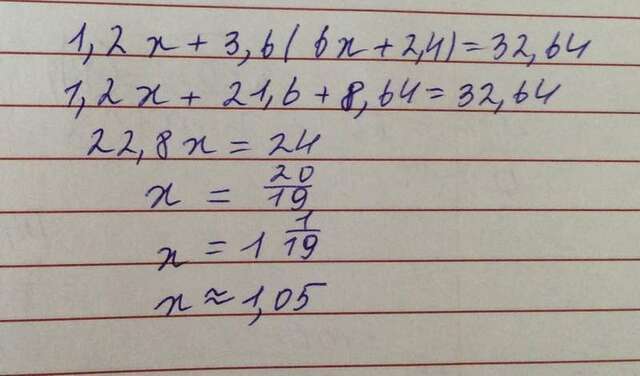 1,2x + 3,6(6x+2,4)=32,64
1,2x + 21,6 + 8,64=32,64
22,8x = 24
x = 20/19
x = 1 1/19
x ≈ 1,05